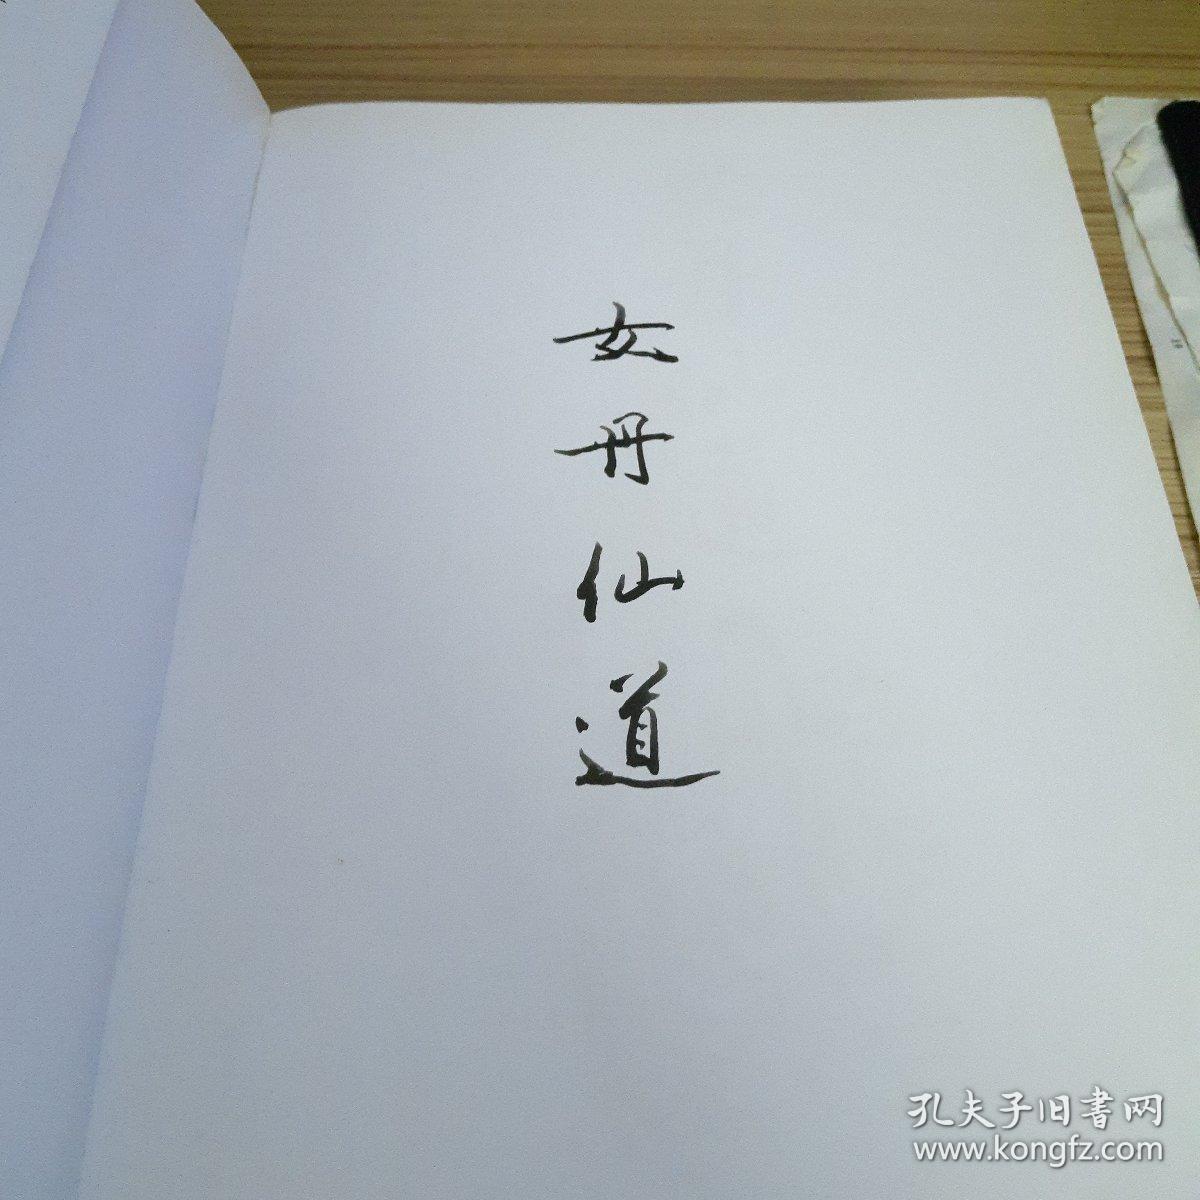 女丹仙道
孔夫子旧书网
www.kongfz.com